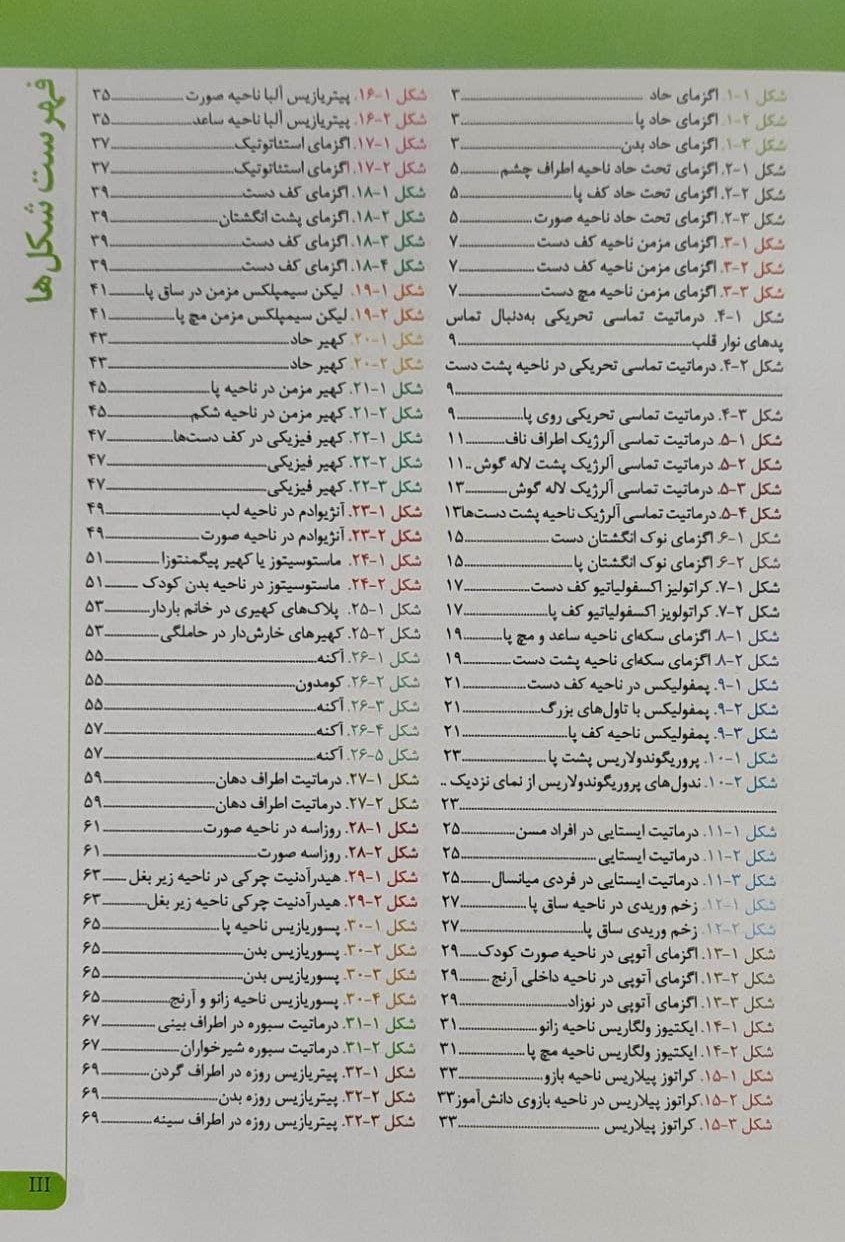 فهرست شکل‌ها
شکل ۱-۱. اگزمای حاد ........ ۳
شکل ۲-۱. اگزمای حاد پا ........ ۳
شکل ۳-۱. اگزمای حاد بدن ........ ۳
شکل ۱-۲. اگزمای تحت حاد ناحیه اطراف چشم ........ ۵
شکل ۲-۲. اگزمای تحت حاد کف پا ........ ۵
شکل ۳-۲. اگزمای تحت حاد ناحیه صورت ........ ۵
شکل ۱-۳. اگزمای مزمن ناحیه کف دست ........ ۷
شکل ۲-۳. اگزمای مزمن ناحیه کف دست ........ ۷
شکل ۳-۳. اگزمای مزمن ناحیه مچ دست ........ ۷
شکل ۱-۴. درماتیت تماسی تحریکی به‌دنبال تماس
پدهای نوار قلب ........ ۹
شکل ۲-۴. درماتیت تماسی تحریکی در ناحیه پشت دست
........ ۹
شکل ۳-۴. درماتیت تماسی تحریکی روی پا ........ ۹
شکل ۱-۵. درماتیت تماسی آلرژیک اطراف ناف ........ ۱۱
شکل ۲-۵. درماتیت تماسی آلرژیک پشت لاله گوش .. ۱۱
شکل ۳-۵. درماتیت تماسی آلرژیک لاله گوش ........ ۱۳
شکل ۴-۵. درماتیت تماسی آلرژیک ناحیه پشت دست‌ها۱۳
شکل ۱-۶. اگزمای نوک انگشتان دست ........ ۱۵
شکل ۲-۶. اگزمای نوک انگشتان پا ........ ۱۵
شکل ۱-۷. کراتولیز اکسفولیاتیو کف دست ........ ۱۷
شکل ۲-۷. کراتولویز اکسفولیاتیو کف پا ........ ۱۷
شکل ۱-۸. اگزمای سکه‌ای ناحیه ساعد و مچ پا ........ ۱۹
شکل ۲-۸. اگزمای سکه‌ای ناحیه پشت دست ........ ۱۹
شکل ۱-۹. پمفولیکس در ناحیه کف دست ........ ۲۱
شکل ۲-۹. پمفولیکس با تاول‌های بزرگ ........ ۲۱
شکل ۳-۹. پمفولیکس ناحیه کف پا ........ ۲۱
شکل ۱-۱۰. پروریگوندولاریس پشت پا ........ ۲۳
شکل ۲-۱۰. ندول‌های پروریگوندولاریس از نمای نزدیک ..
........ ۲۳
شکل ۱-۱۱. درماتیت ایستایی در افراد مسن ........ ۲۵
شکل ۲-۱۱. درماتیت ایستایی ........ ۲۵
شکل ۳-۱۱. درماتیت ایستایی در فردی میانسال ........ ۲۵
شکل ۱-۱۲. زخم وریدی در ناحیه ساق پا ........ ۲۷
شکل ۲-۱۲. زخم وریدی ساق پا ........ ۲۷
شکل ۱-۱۳. اگزمای آتوپی در ناحیه صورت کودک ........ ۲۹
شکل ۲-۱۳. اگزمای آتوپی در ناحیه داخلی آرنج ........ ۲۹
شکل ۳-۱۳. اگزمای آتوپی در نوزاد ........ ۲۹
شکل ۱-۱۴. ایکتیوز ولگاریس ناحیه زانو ........ ۳۱
شکل ۲-۱۴. ایکتیوز ولگاریس ناحیه مچ پا ........ ۳۱
شکل ۱-۱۵. کراتوز پیلاریس ناحیه بازو ........ ۳۳
شکل ۲-۱۵. کراتوز پیلاریس در ناحیه بازوی دانش‌آموز۳۳
شکل ۳-۱۵. کراتوز پیلاریس ........ ۳۳
شکل ۱-۱۶. پیتریازیس آلبا ناحیه صورت ........ ۳۵
شکل ۲-۱۶. پیتریازیس آلبا ناحیه ساعد ........ ۳۵
شکل ۱-۱۷. اگزمای استئاتوتیک ........ ۳۷
شکل ۲-۱۷. اگزمای استئاتوتیک ........ ۳۷
شکل ۱-۱۸. اگزمای کف دست ........ ۳۹
شکل ۲-۱۸. اگزمای پشت انگشتان ........ ۳۹
شکل ۳-۱۸. اگزمای کف دست ........ ۳۹
شکل ۴-۱۸. اگزمای کف دست ........ ۳۹
شکل ۱-۱۹. لیکن سیمپلکس مزمن در ساق پا ........ ۴۱
شکل ۲-۱۹. لیکن سیمپلکس مزمن مچ پا ........ ۴۱
شکل ۱-۲۰. کهیر حاد ........ ۴۳
شکل ۲-۲۰. کهیر حاد ........ ۴۳
شکل ۱-۲۱. کهیر مزمن در ناحیه پا ........ ۴۵
شکل ۲-۲۱. کهیر مزمن در ناحیه شکم ........ ۴۵
شکل ۱-۲۲. کهیر فیزیکی در کف دست‌ها ........ ۴۷
شکل ۲-۲۲. کهیر فیزیکی ........ ۴۷
شکل ۳-۲۲. کهیر فیزیکی ........ ۴۷
شکل ۱-۲۳. آنژیوادم در ناحیه لب ........ ۴۹
شکل ۲-۲۳. آنژیوادم در ناحیه صورت ........ ۴۹
شکل ۱-۲۴. ماستوسیتوز یا کهیر پیگمنتوزا ........ ۵۱
شکل ۲-۲۴. ماستوسیتوز در ناحیه بدن کودک ........ ۵۱
شکل ۱-۲۵. پلاک‌های کهیری در خانم باردار ........ ۵۳
شکل ۲-۲۵. کهیرهای خارش‌دار در حاملگی ........ ۵۳
شکل ۱-۲۶. آکنه ........ ۵۵
شکل ۲-۲۶. کومدون ........ ۵۵
شکل ۳-۲۶. آکنه ........ ۵۵
شکل ۴-۲۶. آکنه ........ ۵۷
شکل ۵-۲۶. آکنه ........ ۵۷
شکل ۱-۲۷. درماتیت اطراف دهان ........ ۵۹
شکل ۲-۲۷. درماتیت اطراف دهان ........ ۵۹
شکل ۱-۲۸. روزاسه در ناحیه صورت ........ ۶۱
شکل ۲-۲۸. روزاسه صورت ........ ۶۱
شکل ۱-۲۹. هیدرآدنیت چرکی در ناحیه زیر بغل ........ ۶۳
شکل ۲-۲۹. هیدرآدنیت چرکی ناحیه زیر بغل ........ ۶۳
شکل ۱-۳۰. پسوریازیس ناحیه پا ........ ۶۵
شکل ۲-۳۰. پسوریازیس بدن ........ ۶۵
شکل ۳-۳۰. پسوریازیس بدن ........ ۶۵
شکل ۴-۳۰. پسوریازیس ناحیه زانو و آرنج ........ ۶۵
شکل ۱-۳۱. درماتیت سبوره در اطراف بینی ........ ۶۷
شکل ۲-۳۱. درماتیت سبوره شیرخواران ........ ۶۷
شکل ۱-۳۲. پیتریازیس روزه در اطراف گردن ........ ۶۹
شکل ۲-۳۲. پیتریازیس روزه بدن ........ ۶۹
شکل ۳-۳۲. پیتریازیس روزه در اطراف سینه ........ ۶۹
III